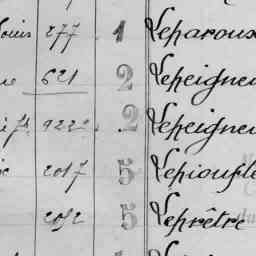 Louis 277 1 Leparoux
621 2 Lepeigneu
922 2 Lepeigneu
2017 5 Lepioufle
2052 5 Leprêtre